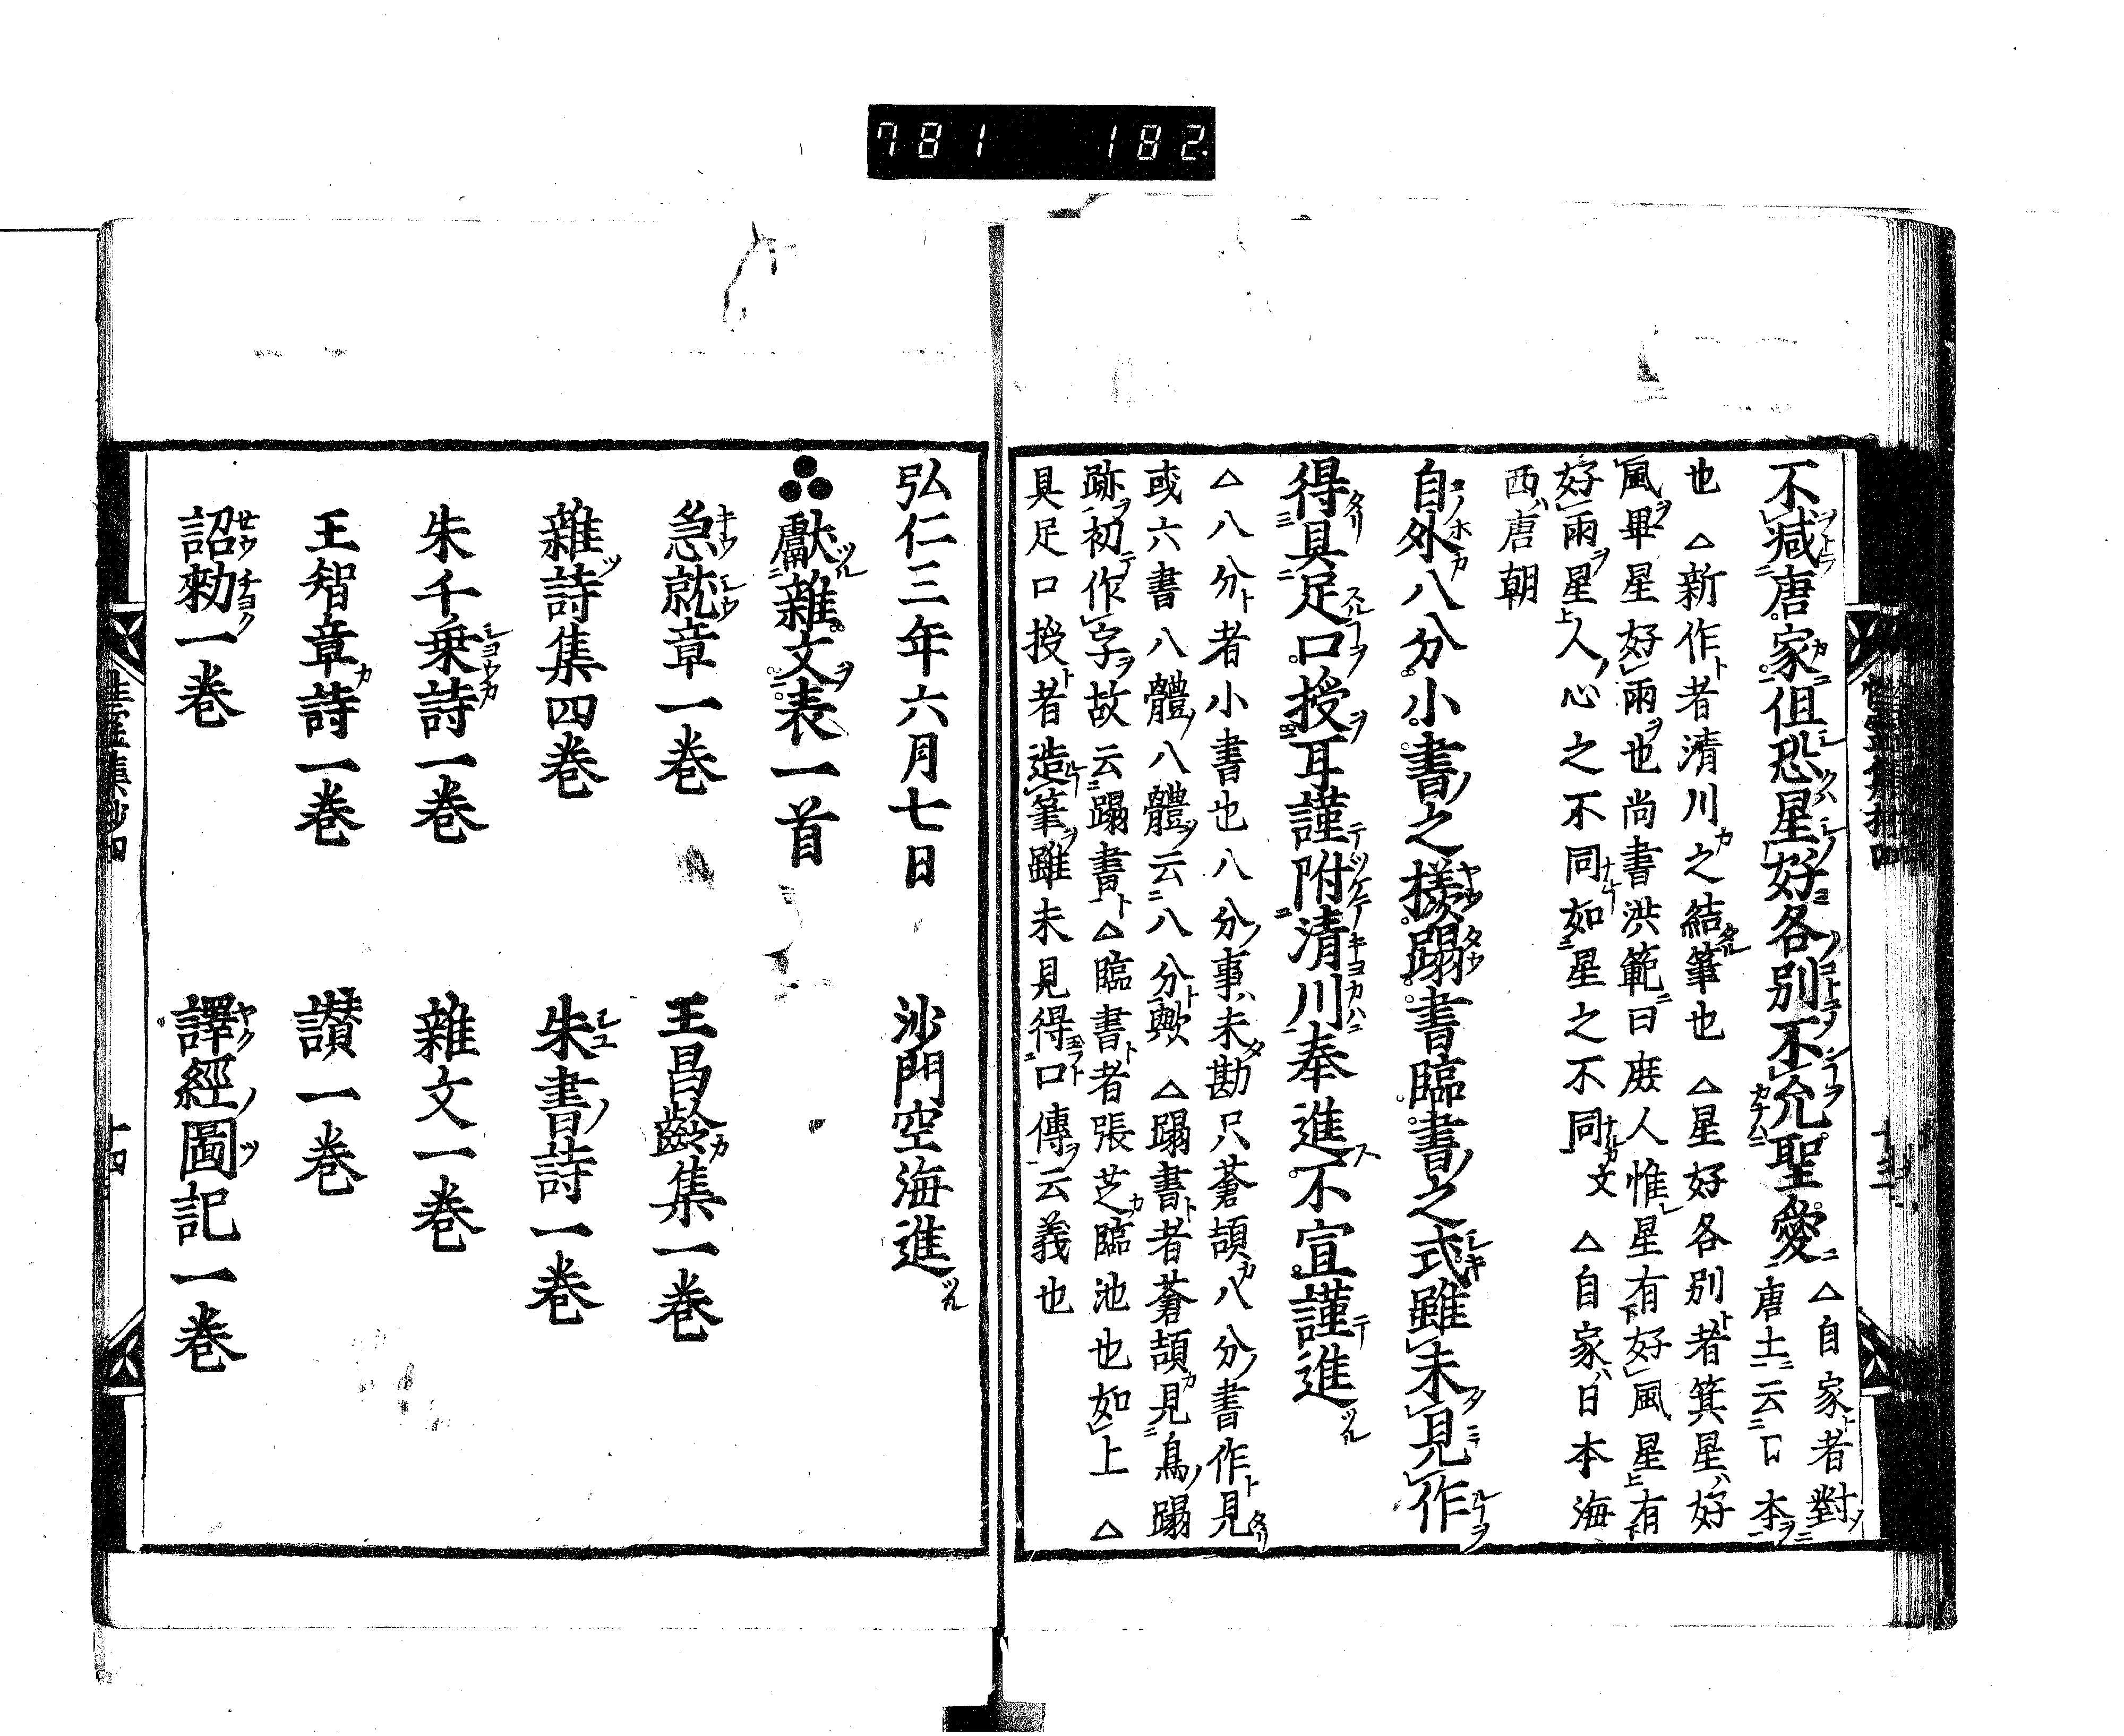 781 182
不減唐家但恐星好各別不允聖愛 △自家者對
唐土云日本
也 △新作者清川之結筆也 △星好各別者箕星好
風畢星好雨也尚書洪範曰庶人惟星有好風星有
好雨星人心之不同如星之不同文 △自家日本海
西唐朝
自外八分小書之㨾蹋書臨書之式雖未見作
得具足口授耳謹附清川奉進不宣謹進
△八分者小書也八分事未勘只蒼頡八分書作見
或六書八體八體云八分歟 △蹋書者蒼頡見鳥蹋
跡初作字故云蹋書 △臨書者張芝臨池也如上 △
具足口授者造筆雖未見得口傳云義也
弘仁三年六月七日 沙門空海進
獻雜文表一首
急就章一巻 王昌齡集一巻
雜詩集四巻 朱書詩一巻
朱千乗詩一巻 雜文一巻
王智章詩一巻 讃一巻
詔勅一巻 譯經圖記一巻